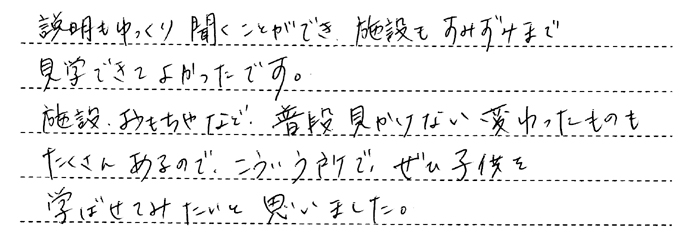 説明もゆっくり聞くことができ、施設もすみずみまで
見学できてよかったです。
施設、おもちゃなど、普段見かけない変わったものも
たくさんあるので、こういう所で、ぜひ子供を
学ばせてみたいと思いました。